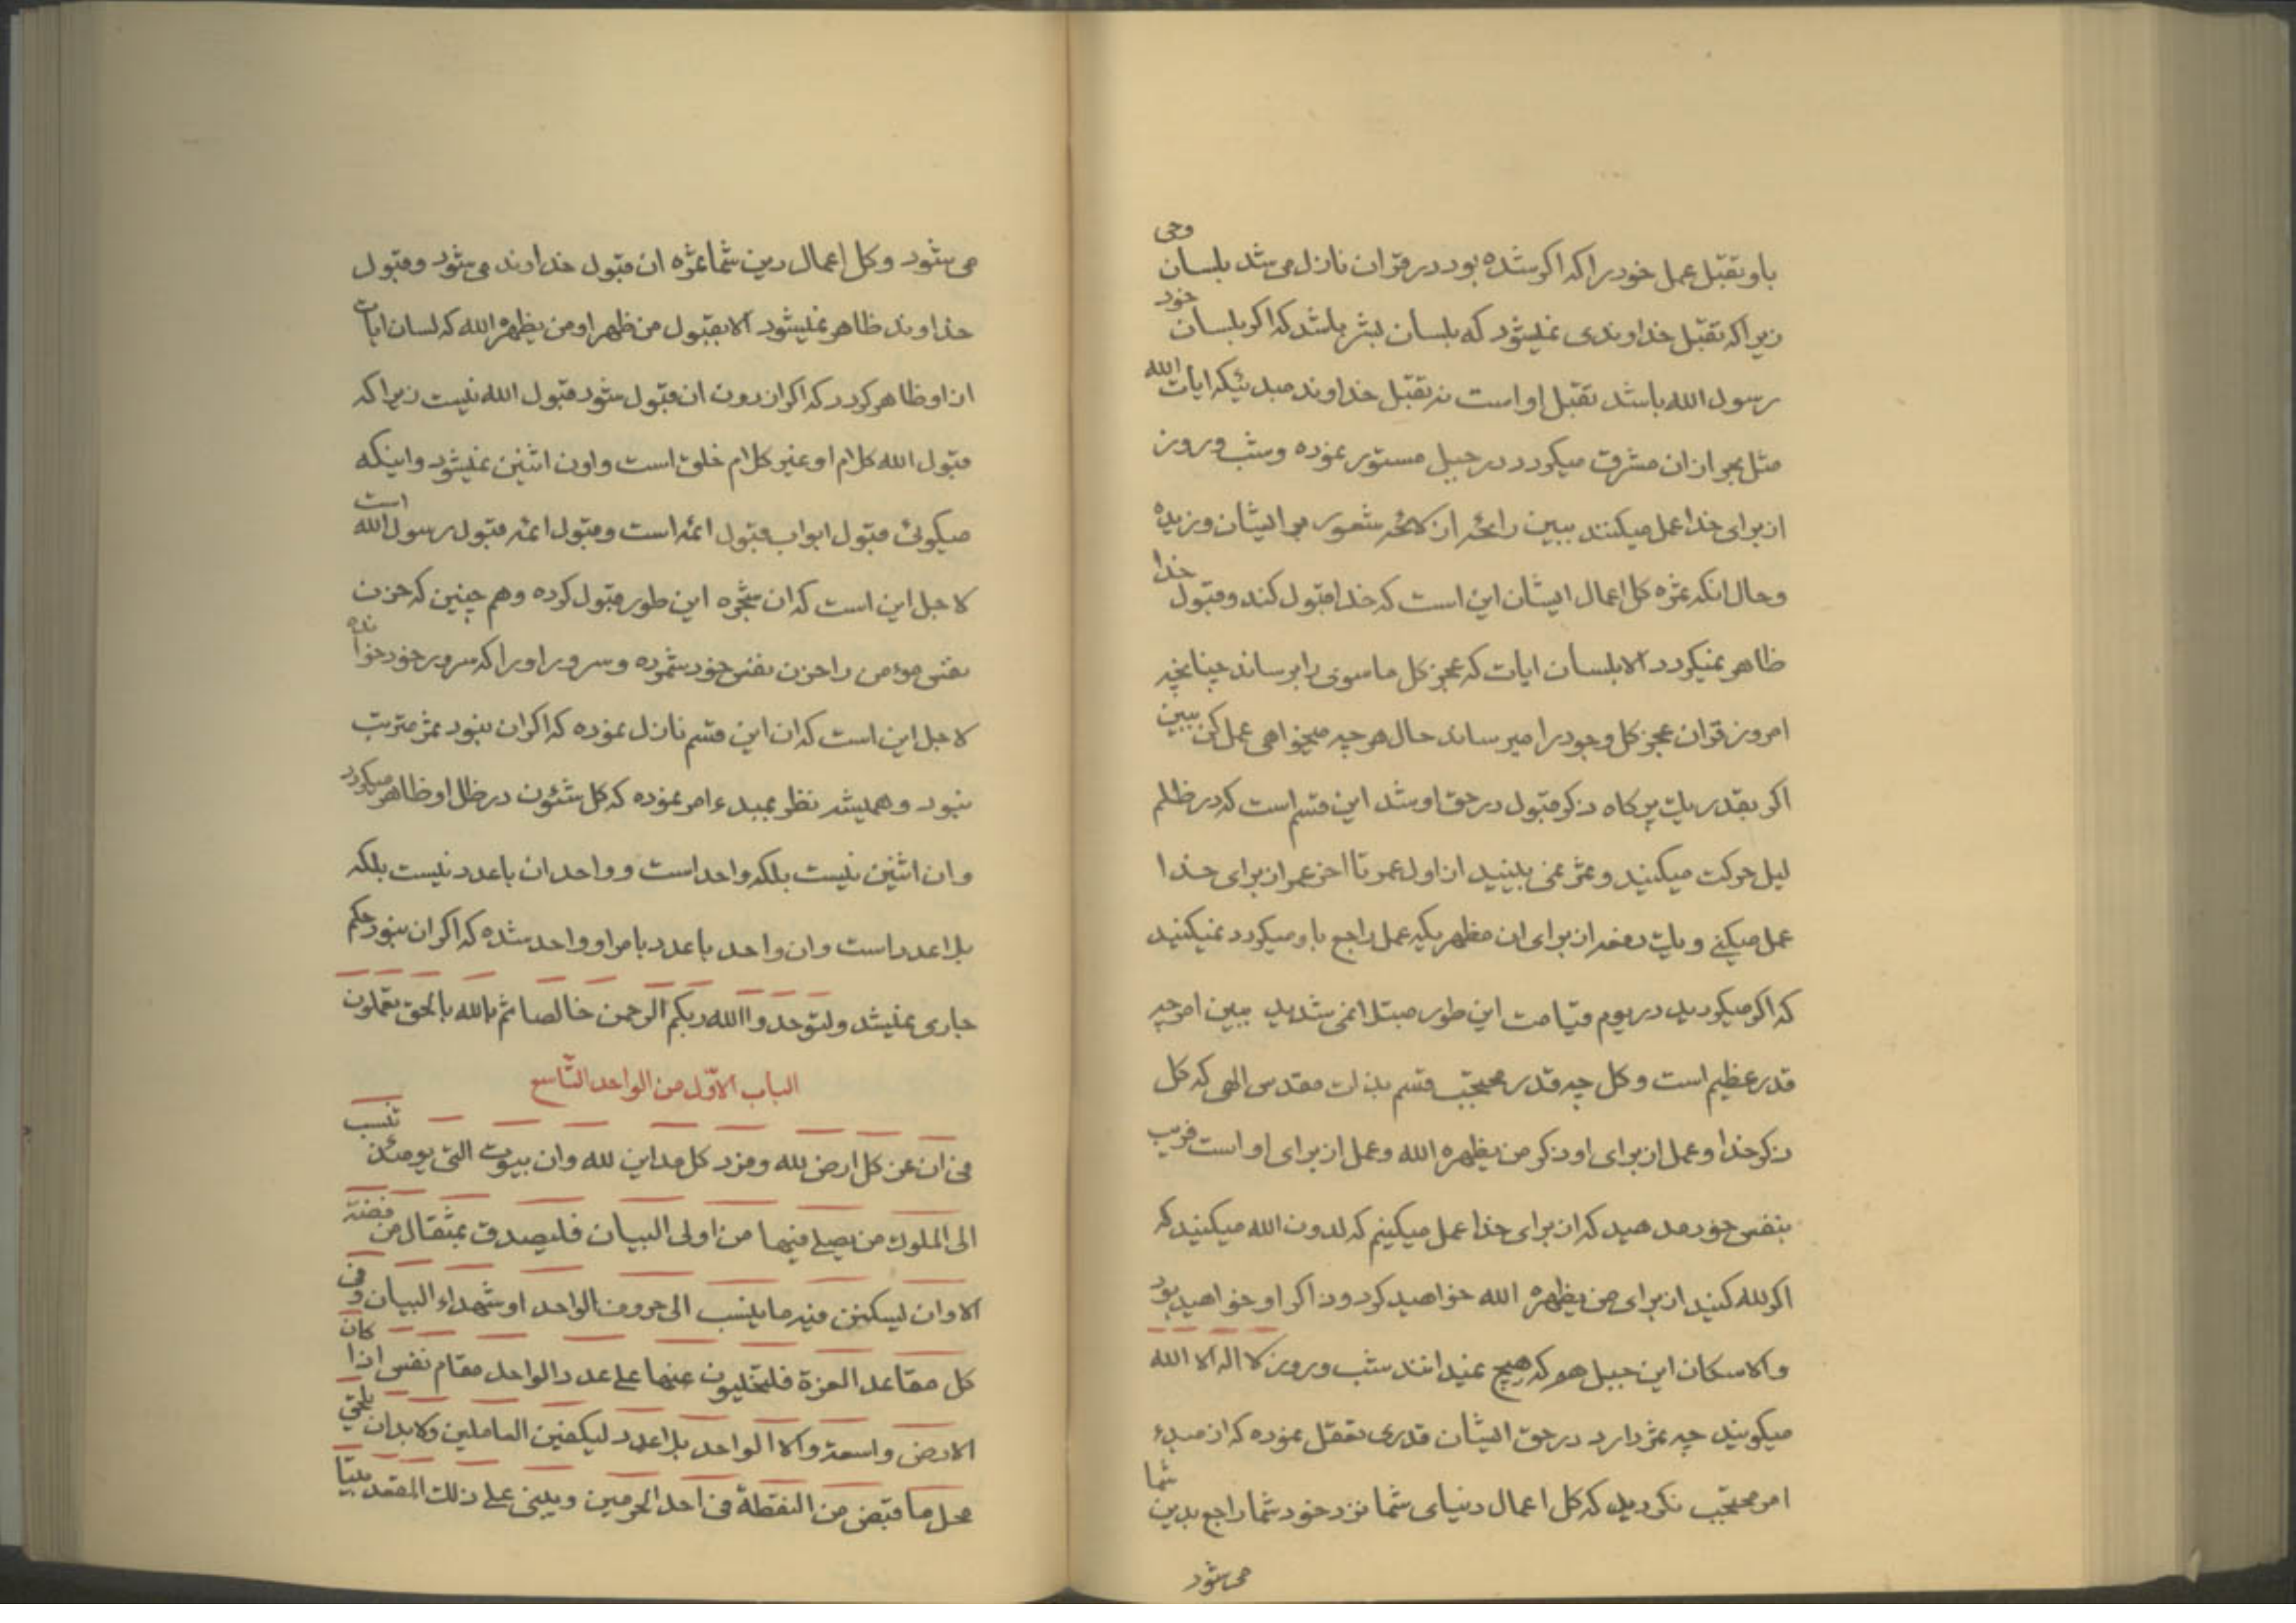 باو تقبّل عمل خود را که اکر شده بود در قران نازل می شد بلسان وحی
زیرا که تقبّل خداوندی نمیشود که بلسان بشر باشد که اکر بلسان خود
رسول الله باشد تقبّل او است نه تقبّل خداوند مبدئیکه ایات الله
مثل بحر از ان مشرق میکردد در جبل مستور نموده و شب و روز
از برای خدا عمل میکنند ببین رایحهٔ از لائحهٔ شعور بر ایشان وزیده
و حال انکه ثمره کل اعمال ایشان این است که خدا قبول کند و قبول خدا
ظاهر نمیکردد الا بلسان ایات که عجز کل ما سوی را برساند چنانچه
امروز قران عجز کل وجود را میرساند حال هر چه میخواهی عمل کن ببین
اکر بقدر یک پر کاه ذکر قبول در حق او شد این قسم است که در ظلم
لیل حرکت میکنید و ثمر نمی بینید از اول عمر تا اخر عمر از برای خدا
عمل میکنی و یک دفعه از برای ان مظهریکه عمل راجع باو میکردد نمیکنید
که اکر میکردید در یوم قیامت این طور مبتلا نمی شدید ببین امر چه
قدر عظیم است و کل چه قدر محتجب قسم بذات مقدس الهی که کل
ذکر خدا و عمل از برای او ذکر من یظهره الله و عمل از برای او است فریب
بنفس خود مدهید که از برای خدا عمل میکنیم که لدون الله میکنید که
اکر لله کنید از برای من یظهره الله خواهید کرد و ذاکر او خواهید بود
والا سکان این جبل هم که هیچ نمیدانند شب و روز لا اله الا الله
میکویند چه ثمر دارد در حق ایشان قدری تعقل نموده که از مبدء
امر محتجب نکردید که کل اعمال دنیای شما نزد خود شما راجع بدین شما
می شود
می شود و کل اعمال دین شما ثمره ان قبول خداوند می شود و قبول
خداوند ظاهر نمیشود الا بقبول من ظهر او من یظهره الله که لسان ایات
از او ظاهر کردد که اکر از دون ان قبول شود قبول الله نیست زیرا که
قبول الله کلام او غیر کلام خلق است و اون اثنین نمیشود و اینکه
میکوئی قبول ابواب قبول ائمه است و قبول ائمه قبول رسول الله است
لاجل این است که ان شجره این طور قبول کرده و هم چنین که حزن
نفس مومن را حزن نفس خود شمرده و سرور او را که سرور خود خوانده
لاجل این است که ان این قسم نازل نموده که اکر ان نبود ثمر مترتب
نبود و همیشه نظر بمبدء امر نموده که کل شئون در ظل او ظاهر میکردد
و ان اثنین نیست بلکه واحد است و واحد ان باعدد نیست بلکه
بلا عدد است و ان واحد باعدد بامر او واحد شده که اکر ان نبود حکم
جاری نمیشد ولتوحدوا الله ربکم الرحمن خالصا ثم بالله بالحق تعملون
الباب الاوّل من الواحد التّاسع
فی ان عز کل ارض لله و مزد کل مداین لله وان بیوت التی یومئذ تنسب
الی الملوک من یصلی فیها من اولی البیان فلیصدق بمثقال من فضة
الا وان لیسکنن فیه ما ینسب الی حروف الواحد او شهداء البیان و فی
کل مقاعد العزة فلتخلیون عنها علی عدد الواحد مقام نفس اذا کان
الارض واسعة والا الواحد بلا عدد لیکفین العاملین ولابدان یلحق
محل ما قبض من النقطة فی احد الحرمین ویبنی علی ذلک المقعد بیتا